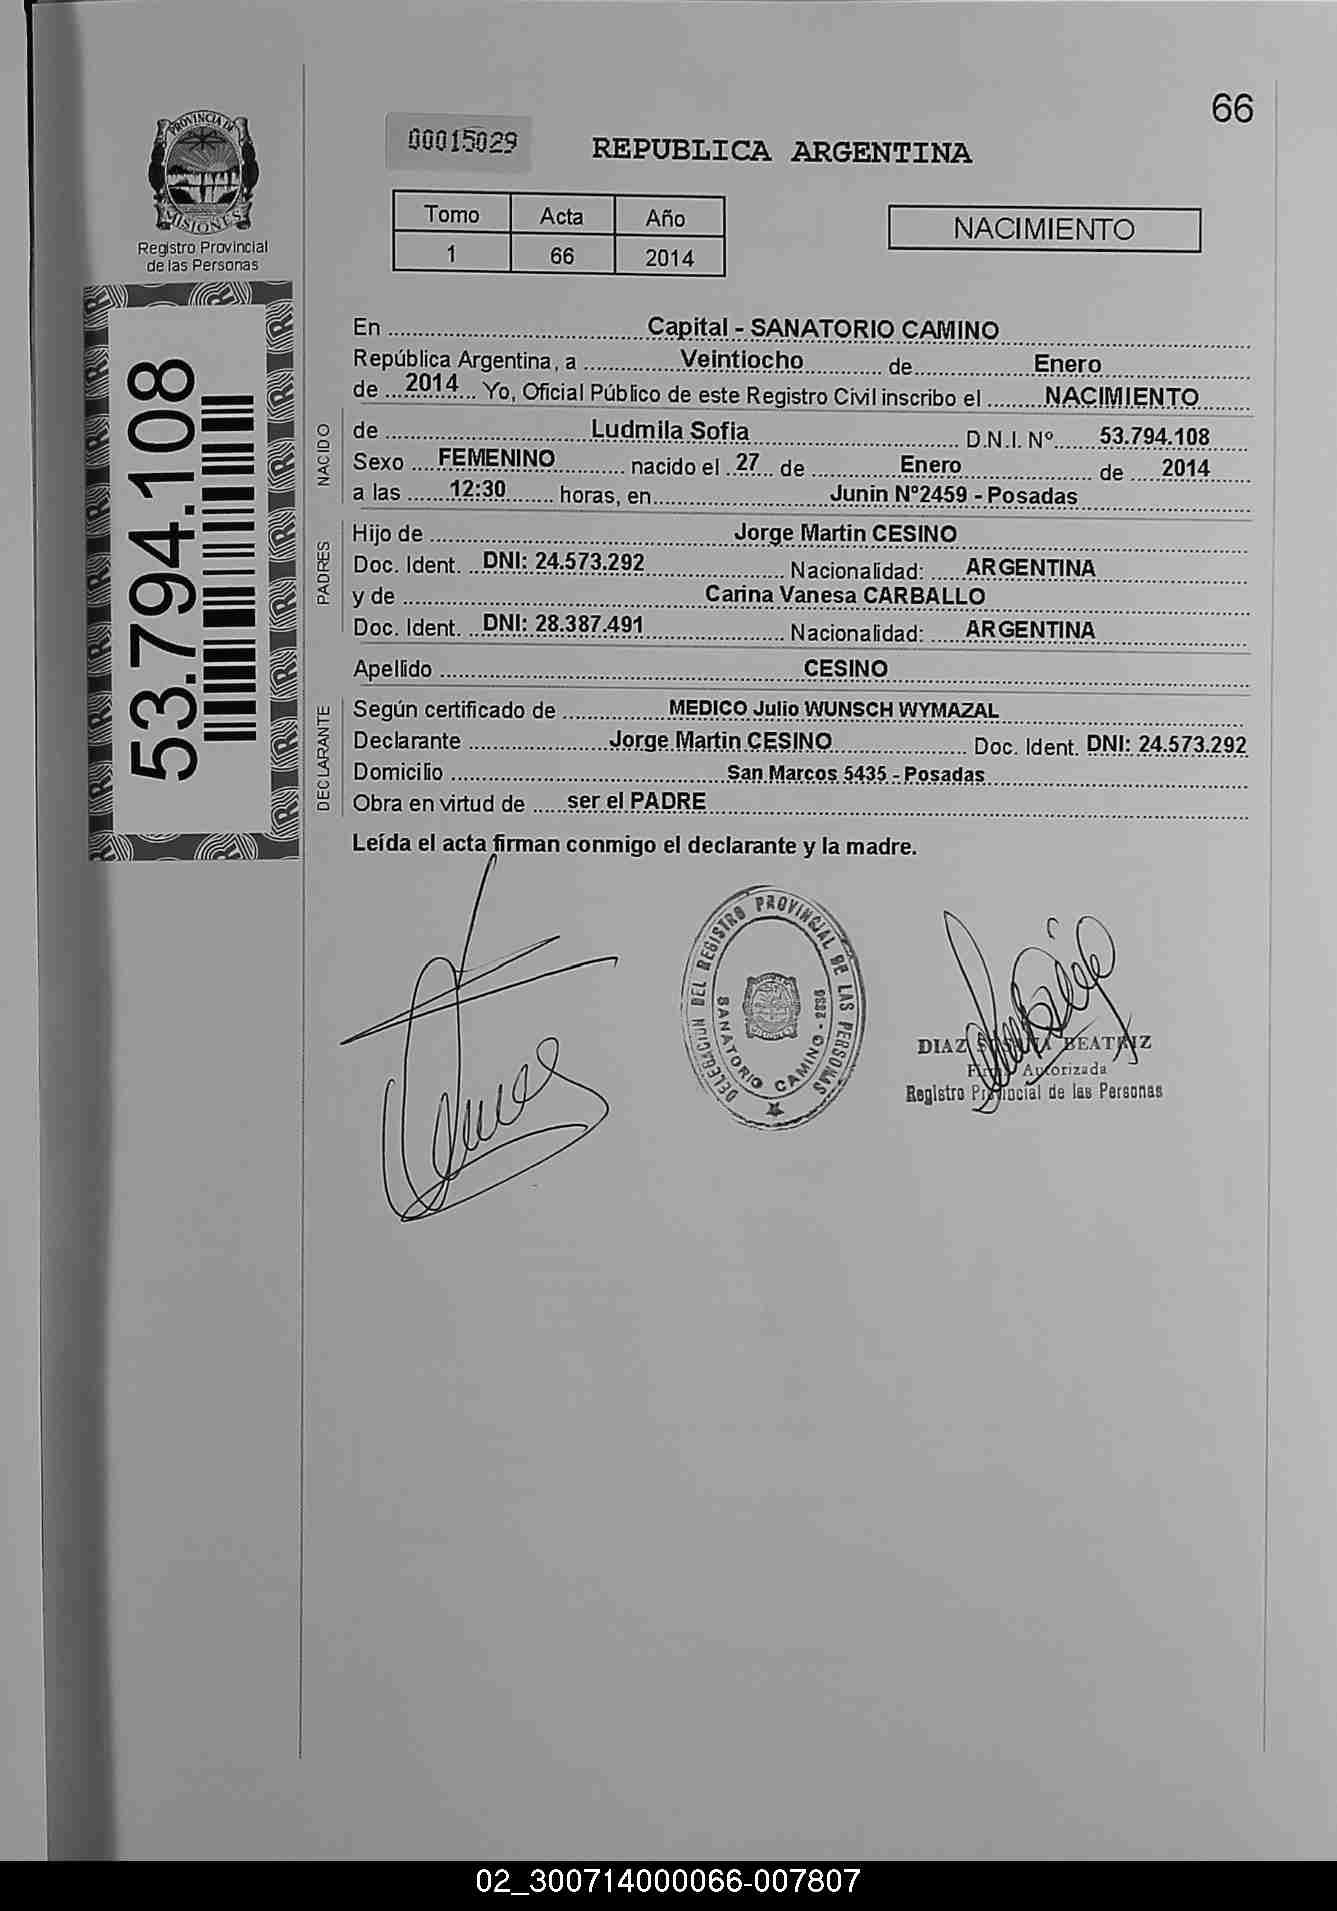 66
PROVINCIA DE
MISIONES
Registro Provincial
de las Personas
53.794.108
00015029
REPUBLICA ARGENTINA
Tomo Acta Año
1 66 2014
NACIMIENTO
En Capital - SANATORIO CAMINO
República Argentina, a Veintiocho de Enero
de 2014 Yo, Oficial Público de este Registro Civil inscribo el NACIMIENTO
NACIDO
de Ludmila Sofia D.N.I. Nº 53.794.108
Sexo FEMENINO nacido el 27 de Enero de 2014
a las 12:30 horas, en Junin Nº2459 - Posadas
PADRES
Hijo de Jorge Martin CESINO
Doc. Ident. DNI: 24.573.292 Nacionalidad: ARGENTINA
y de Carina Vanesa CARBALLO
Doc. Ident. DNI: 28.387.491 Nacionalidad: ARGENTINA
Apellido CESINO
DECLARANTE
Según certificado de MEDICO Julio WUNSCH WYMAZAL
Declarante Jorge Martin CESINO Doc. Ident. DNI: 24.573.292
Domicilio San Marcos 5435 - Posadas
Obra en virtud de ser el PADRE
Leída el acta firman conmigo el declarante y la madre.
DELEGACION DEL REGISTRO PROVINCIAL DE LAS PERSONAS
SANATORIO CAMINO -
DIAZ SUSANA BEATRIZ
Firma Autorizada
Registro Provincial de las Personas
02_300714000066-007807